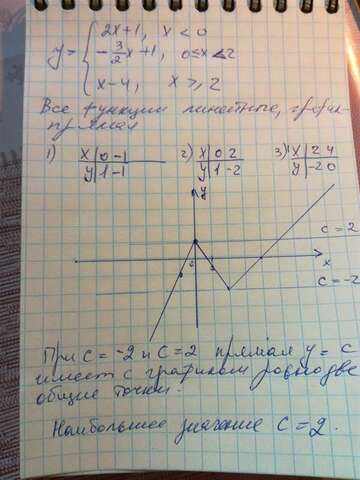 2x+1, x < 0
y = { -3/2x+1, 0≤x≤2
x-4, x ≥ 2
Все функции линейные, график-
прямая
1) x | 0 -1 2) x | 0 2 3) x | 2 4
y | 1 -1 y | 1 -2 y | -2 0
y
c = 2
x
c = -2
При C = -2 и C = 2 прямая y = c
имеет с графиком ровно две
общие точки.
Наибольшее значение C = 2.